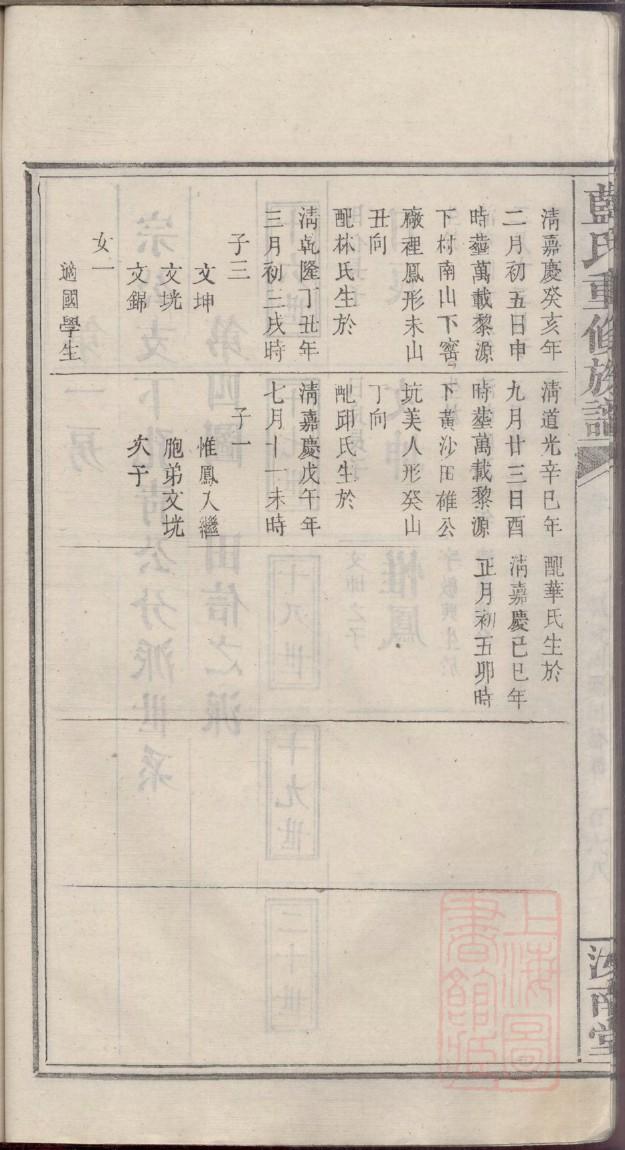 藍氏重修族譜
汝南堂
清嘉慶癸亥年
二月初五日申
時塟萬載黎源
下村南山下窰
廠裡鳳形未山
丑向
配林氏生於
清乾隆丁丑年
三月初三戌時
子三
文坤
文垙
文錦
女一
適國學生
清道光辛巳年
九月廿三日酉
時塟萬載黎源
下黃沙田碓公
坑美人形癸山
丁向
配邱氏生於
清嘉慶戊午年
七月十一未時
子一
惟鳳入繼
胞弟文垙
次子
配華氏生於
清嘉慶己巳年
正月初五卯時
上海圖
書館藏